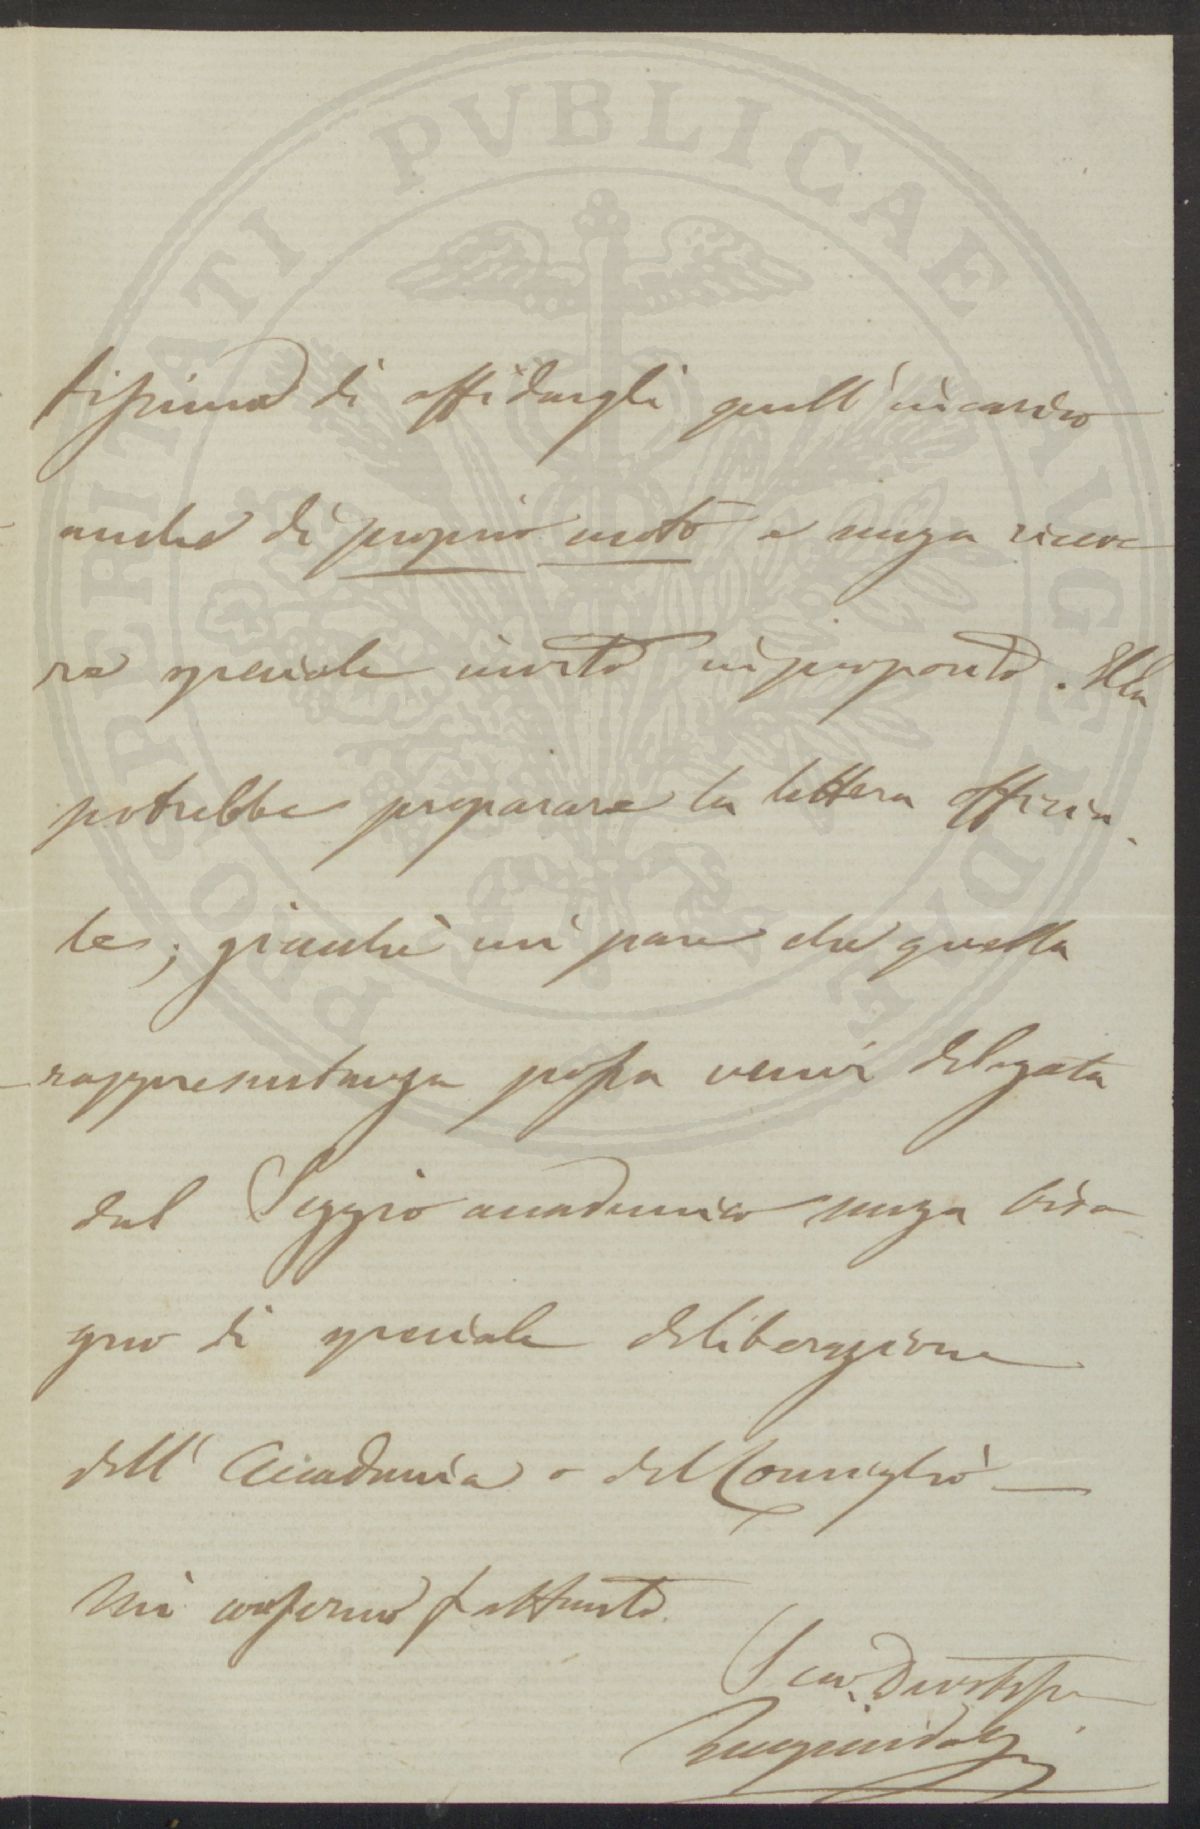 PROSPERITATI PVBLICAE AVGENDAE
tissima di affidargli quell'incarico
anche di proprio moto e senza riceve
re speciale invito in proposito. Ella
potrebbe preparare la lettera officia-
le; giacchè mi pare che quella
rappresentanza possa venir delegata
dal Seggio accademico senza biso-
gno di speciale deliberazione
dell'Accademia o del Consiglio —
Mi confermo frattanto
Suo Devotissi